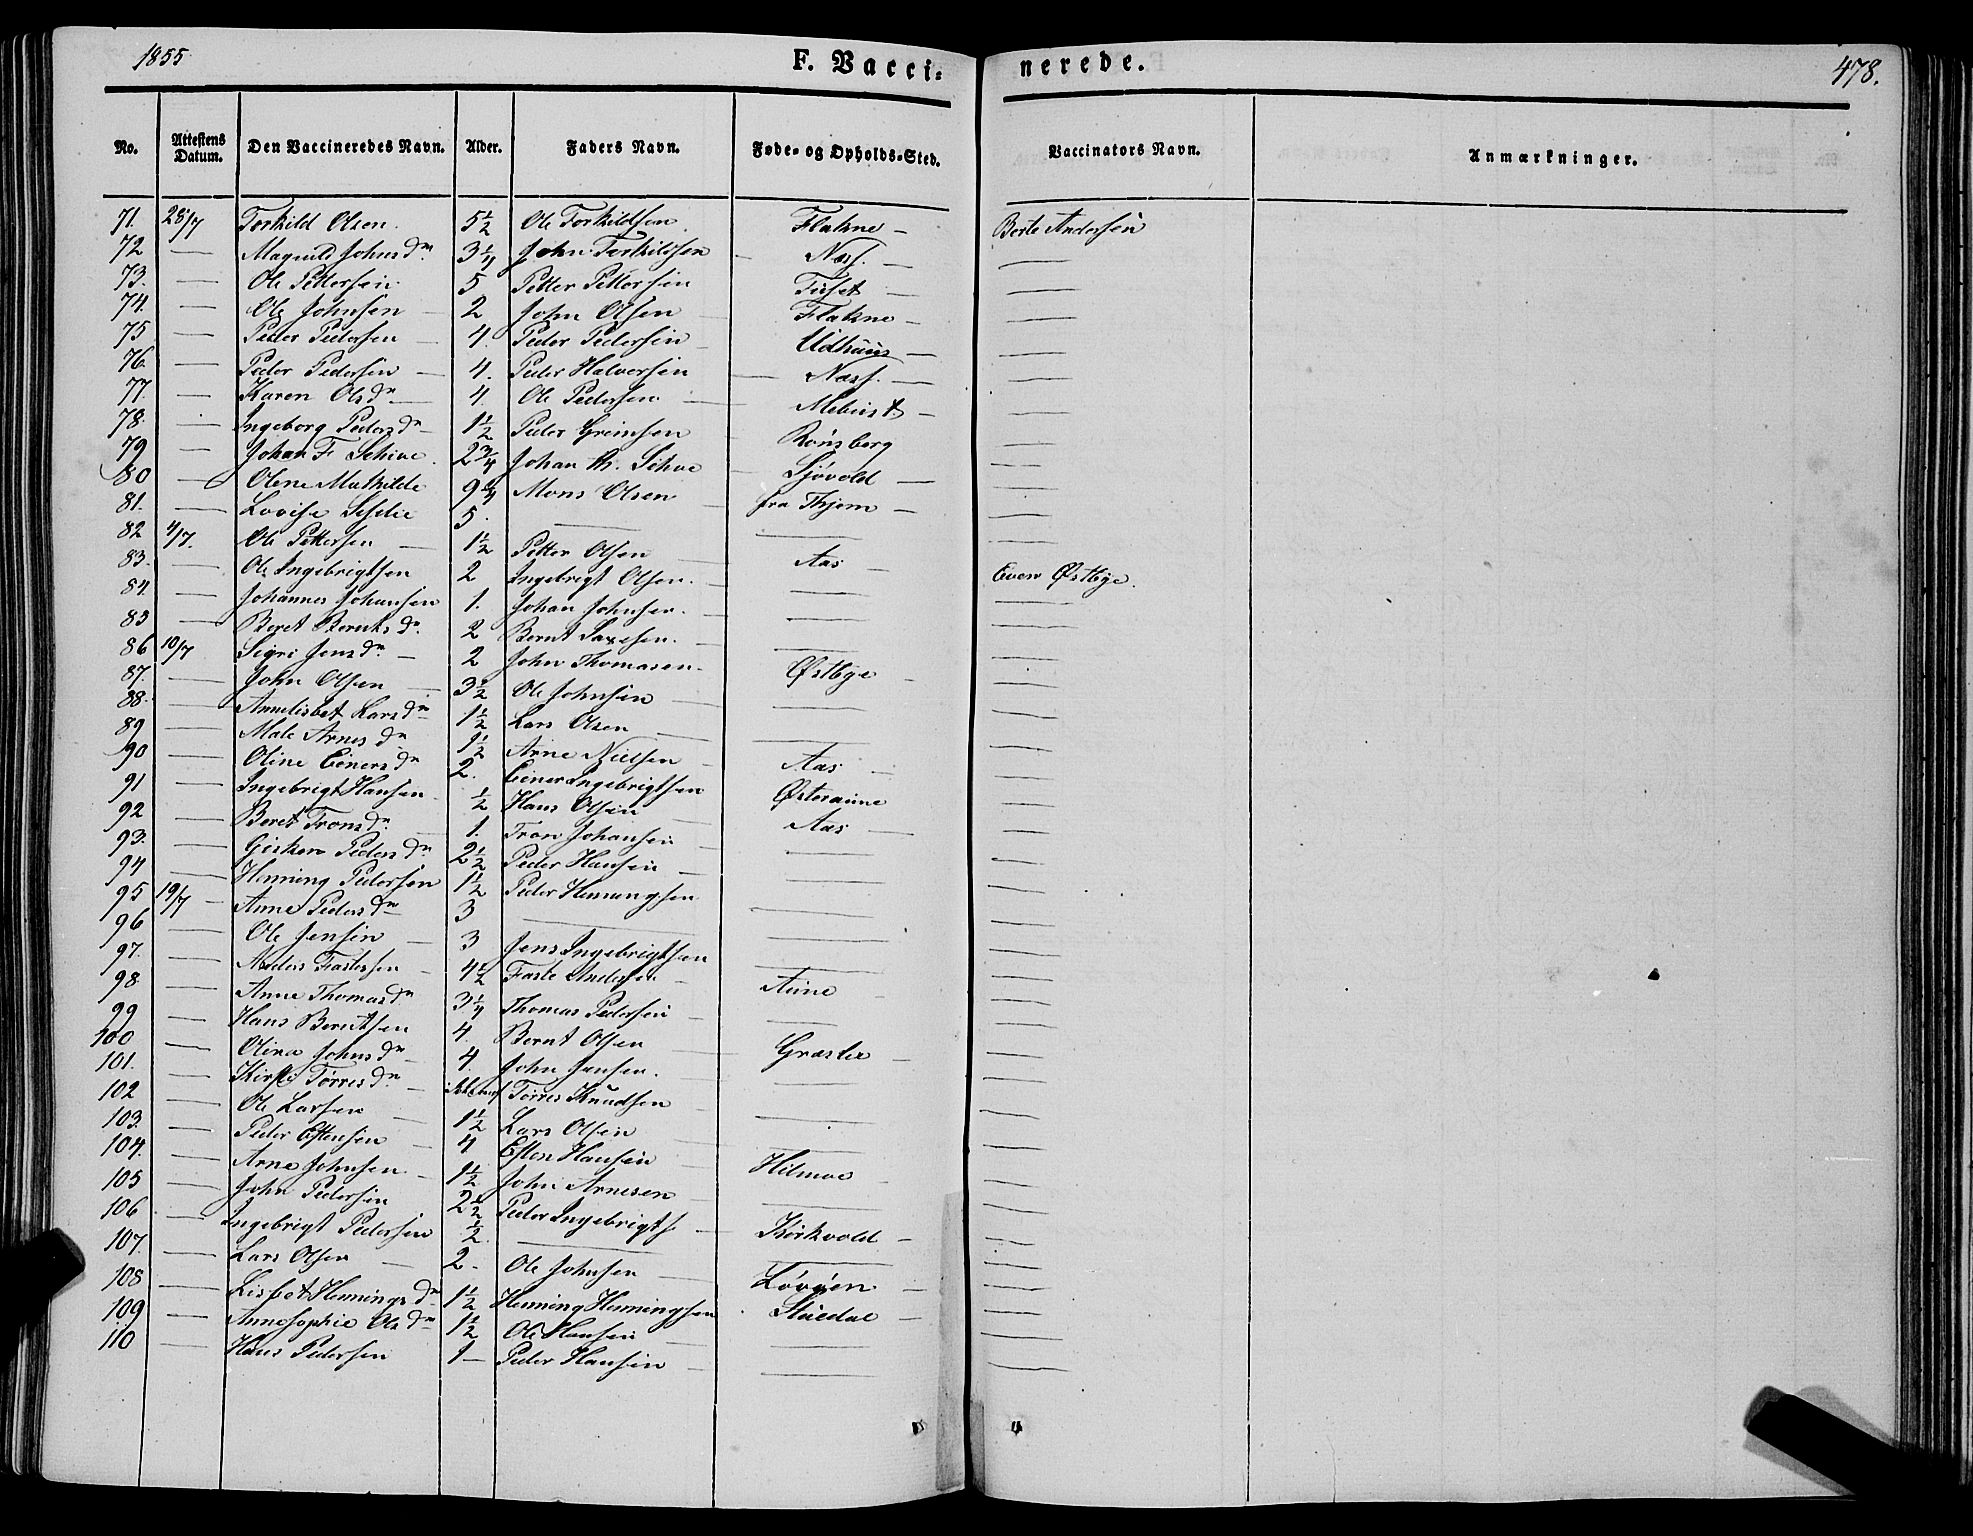 1855
F. Vacci- nerede.
478.
No. Attestens Datum. Den Vaccineredes Navn. Alder. Faders Navn. Føde- og Opholds-Sted. Vaccinators Navn. Anmærkninger.
71. 28/7 Torkild Olsen. 5½ Ole Torkildsen. Flakne — Berte Andersen
72 — Magnild Johnsdr. 3¼ John Torkildsen — Næss. — —
73. — Ole Pettersen. 5 Petter Pettersen Tuset — —
74. — Ole Johnsen — 2 John Olsen — Flakne — —
75 — Peder Pedersen — 4. Peder Pedersen — Udhuus — —
76. — Peder Pedersen — 4. Peder Halvorsen — Næss. — —
77. — Karen Olsdr — 4 Ole Pedersen — Mebust — —
78. — Ingeborg Pedersdr — 1½ Peder Greimsen — Rønsberg —
79 — Johan F. Schive. 2¾ Johan Th. Schive — Sjøvold — —
80 — Olene Mathilde 9¼ Mons Olsen — fra Thjem — —
81. — Lovise 5. — — —
82 4/7. Ole Pettersen — 1½ Petter Olsen — Aas — —
83. — Ole Ingebrigtsen 2 Ingebrigt Olsen. — — Even Østbye.
84 — Johannes Johansen 1. Johan Johnsen. — — —
85 — Beret Berntsdr. 2 Bernt Saxesen. — — —
86 10/7 Sigri Jensdr — 2 John Thomasen. Østbye — —
87. — John Olsen — 3½ Ole Johnsen — — —
88. — Annelisbet Larsdr 1½ Lars Olsen — — —
89 — Male Arnesdr 1½ Arne Nielsen — Aas — —
90 — Oline Einersdr 2. Einer Ingebrigtsen Østeraune —
91 — Ingebrigt Hansen ½ Hans Olsen — Aas — —
92 — Beret Tronsdr. 1. Tron Johansen — — —
93. — Pedersdr. 2½ Peder Hansen — — —
94 — Henning Pedersen 1½ Peder Henningsen — —
95 19/7 — Anne Pedersdr 3 — — —
96 — Ole Jensen — 3 Jens Ingebrigtsen — —
97. — Anders Fastesen — 4½ Faste Andersen — Aune — —
98 — Anne Thomasdr 3¼ Thomas Pedersen — — —
99 — Hans Berntsen 4. Bernt Olsen — Græslie — —
100 — Olina Johnsdr — 4. John Jensen. — —
101. — Kirsti Tørresdr — Tørres Knudsen — — —
102 — Ole Larsen — 1½ Lars Olsen — — —
103. — Peder Estensen — 4 Esten Hansen Hilmoe — —
104. — Arne Johnsen. — 1½ John Arnesen — — —
105 — John Pedersen 2½ Peder Ingebrigts. — Kirkvold — —
106 — Ingebrigt Pedersen ½ — — —
107. — Lars Olsen — 2. Ole Johnsen — Løvøen — —
108 — Lisbet Henningsdr 1½ Henning Henningsen Stuedal — —
109 — Annesophie Olsdr 1½ Ole Hansen — — —
110 — Hans Pedersen 1 — Peder Hansen — — —